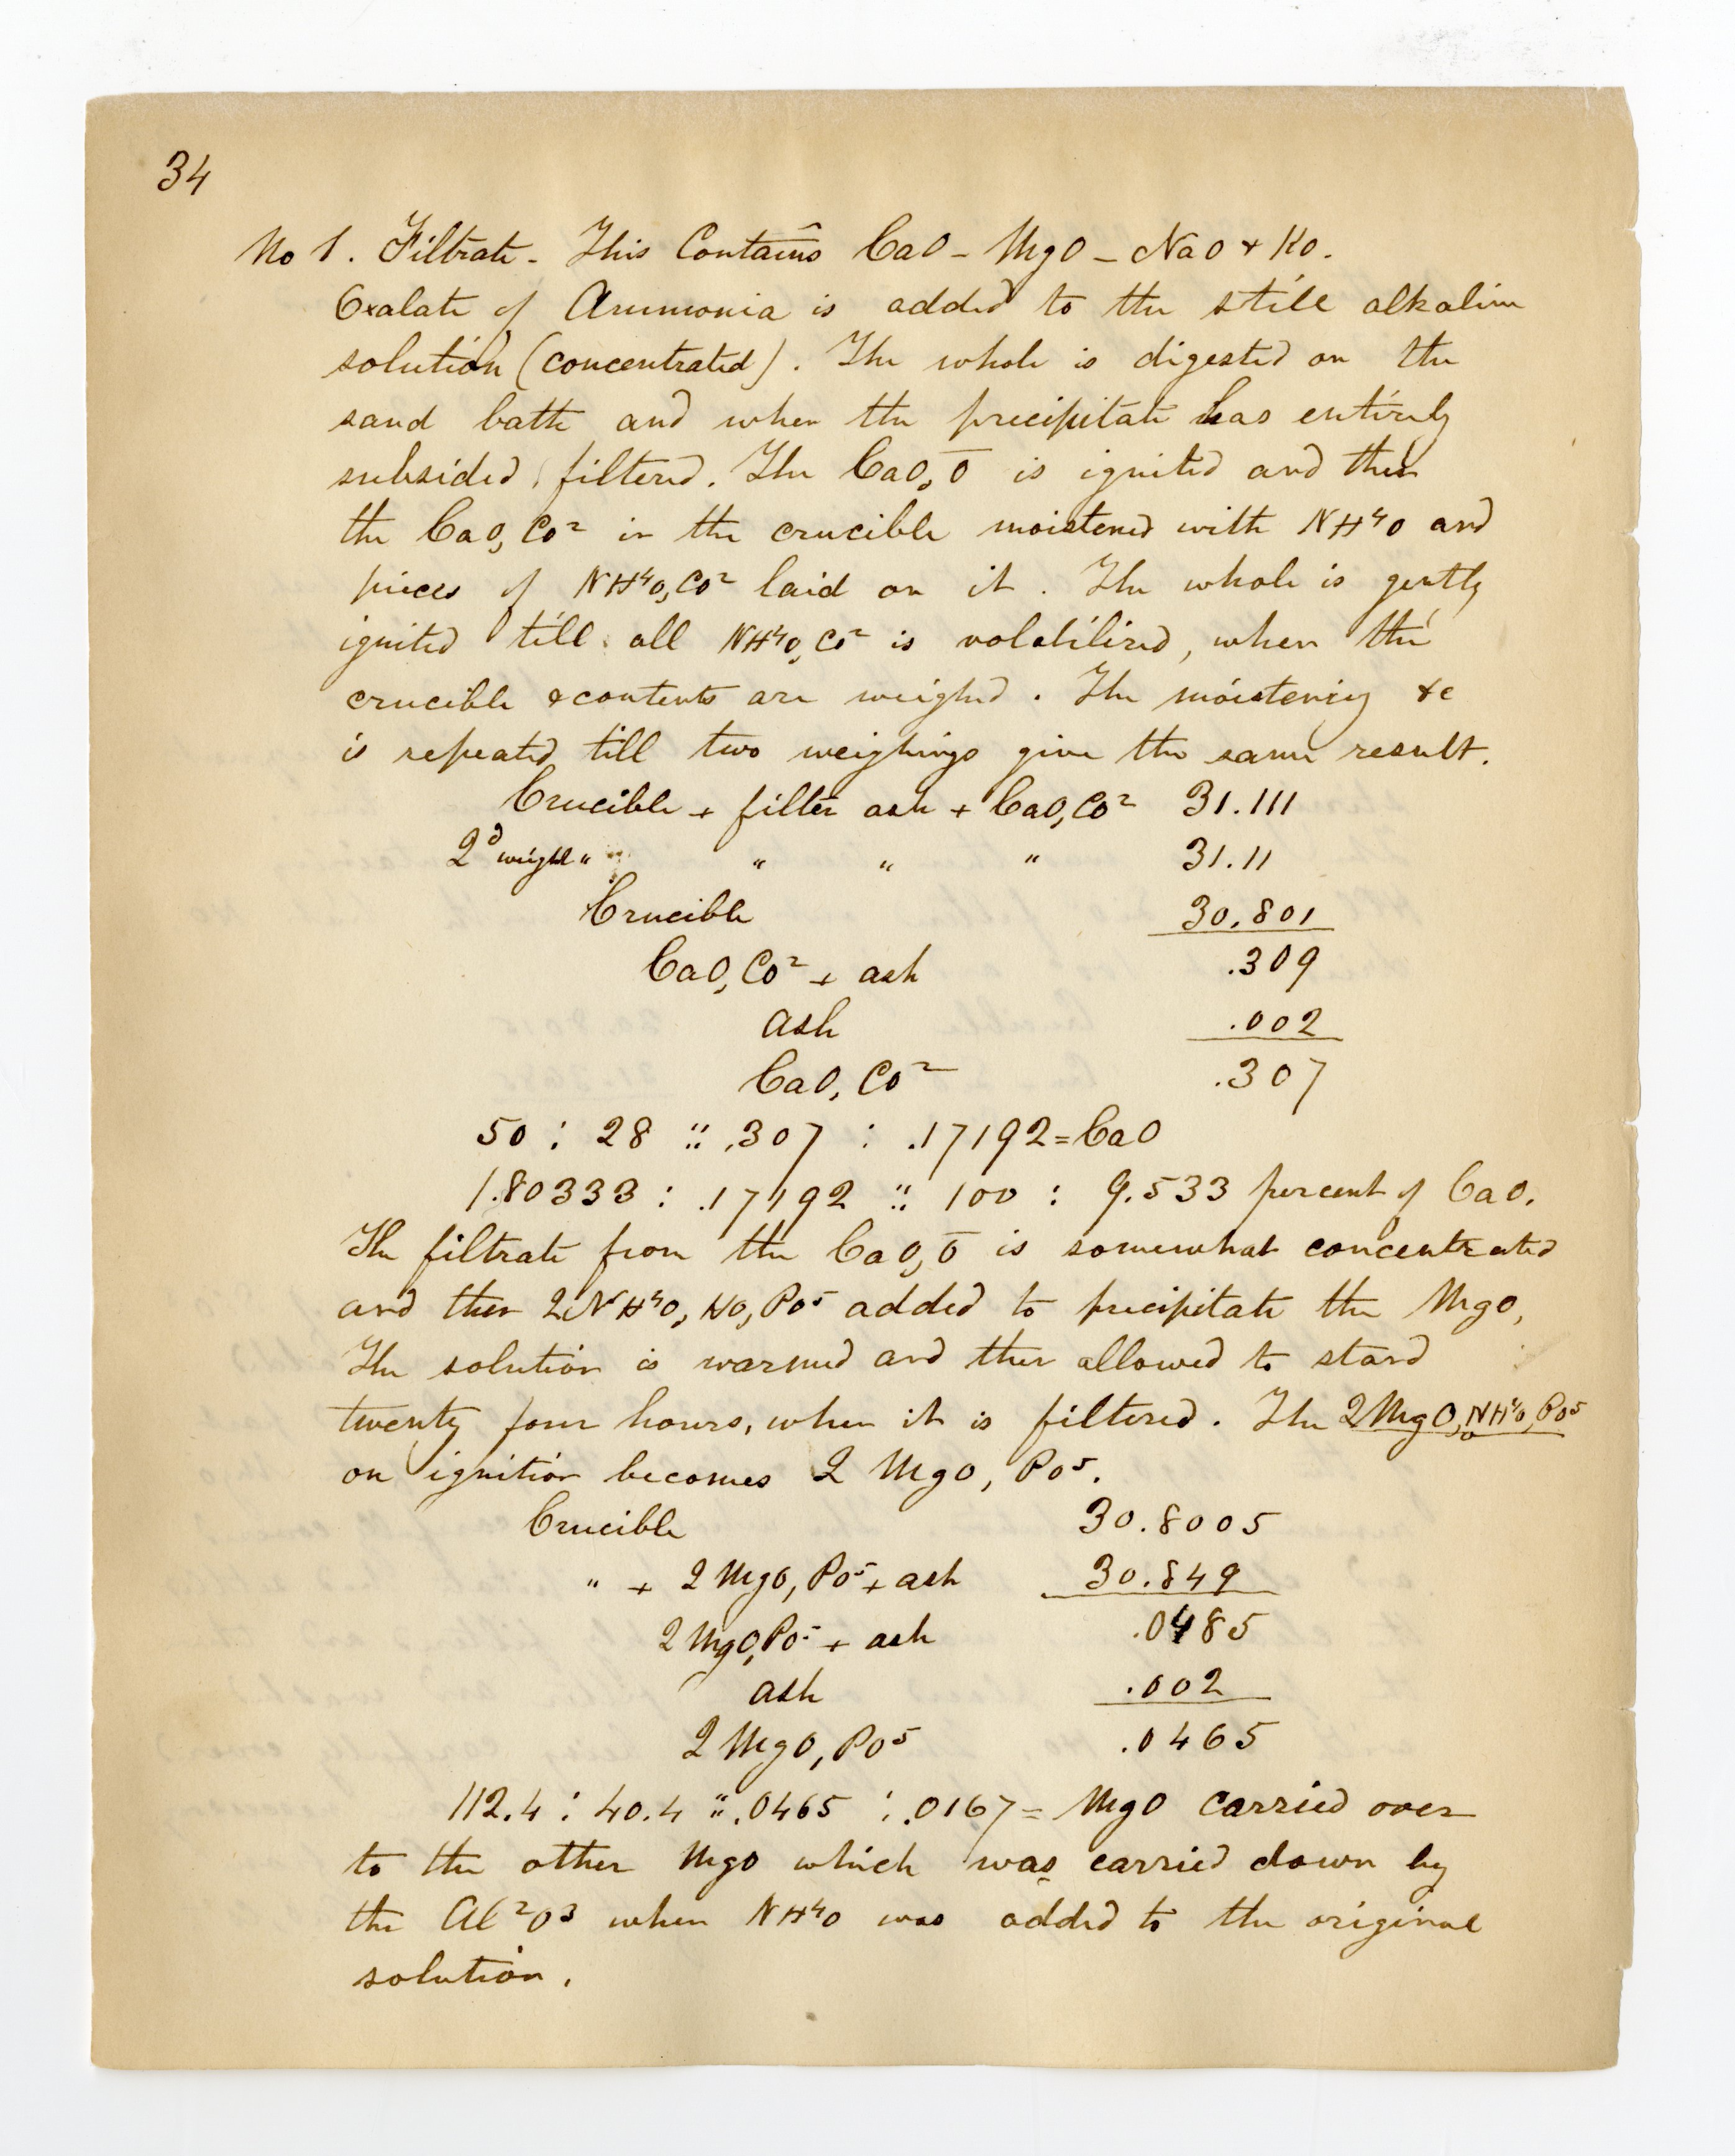 34
No 1. Filtrate - This Contains CaO - MgO - NaO + KO.
Oxalate of Ammonia is added to the still alkaline
solution (concentrated). The whole is digested on the
sand bath and when the precipitate has entirely
subsided, filtered. The CaO, O̅ is ignited and then
the CaO, CO² in the crucible moistened with NH⁴O and
pieces of NH⁴O, CO² laid on it. The whole is gently
ignited till all NH⁴O, CO² is volatilized, when the
crucible & contents are weighed. The moistening &c
is repeated till two weighings give the same result.
Crucible + filter ash + CaO, CO² 31.111
2d weight " " " " 31.11
Crucible 30.801
CaO, CO² + ash .309
ash .002
CaO, CO² .307
50 : 28 :: .307 : .17192 = CaO
1.80333 : .17192 :: 100 : 9.533 percent of CaO.
The filtrate from the CaO, O̅ is somewhat concentrated
and then 2NH⁴O, HO, PO⁵ added to precipitate the MgO,
The solution is warmed and then allowed to stand
twenty four hours, when it is filtered. The 2MgO, NH⁴O, PO⁵
on ignition becomes 2 MgO, PO⁵.
Crucible 30.8005
" + 2 MgO, PO⁵ + ash 30.849
2 MgO, PO⁵ + ash .0485
ash .002
2 MgO, PO⁵ .0465
112.4 : 40.4 :: .0465 : .0167 = MgO carried over
to the other MgO which was carried down by
the Al²O³ when NH⁴O was added to the original
solution.